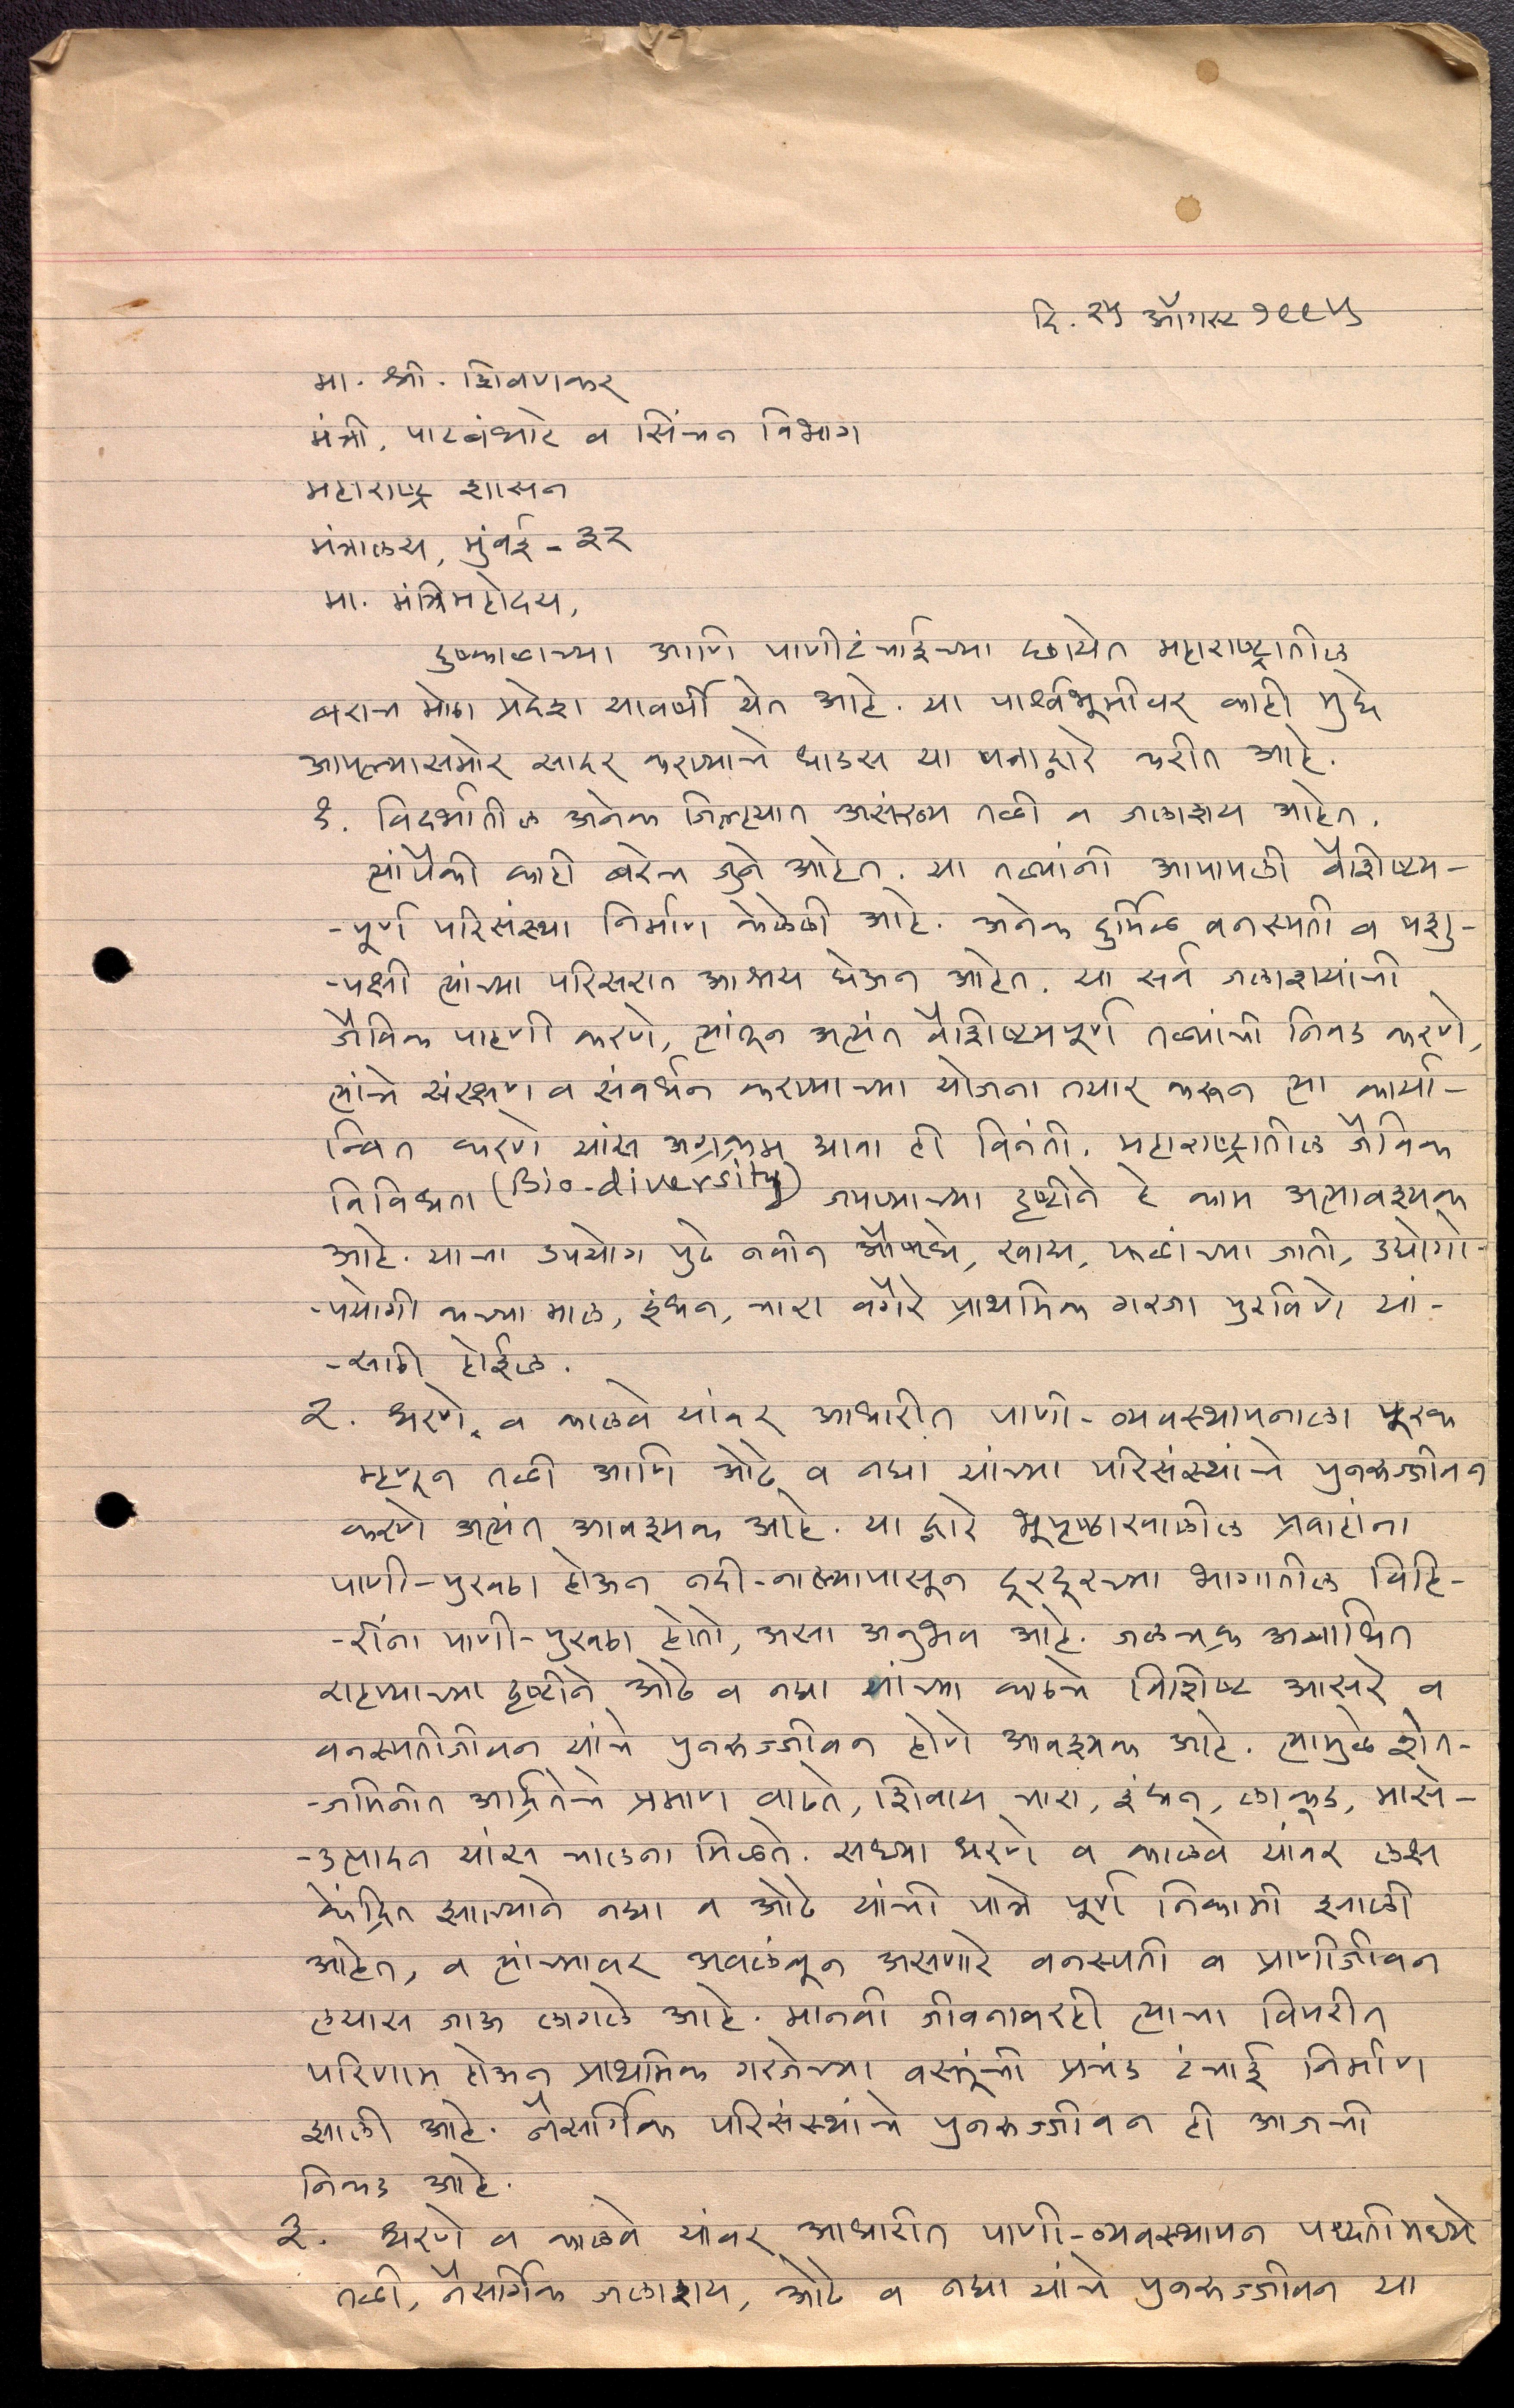 दि. २५ ऑगस्ट १९९५
मा. श्री. शिवणकर
मंत्री, पाटबंधारे व सिंचन विभाग
महाराष्ट्र शासन
मंत्रालय, मुंबई - ३२
मा. मंत्रिमहोदय,
दुष्काळाच्या आणि पाणीटंचाईच्या छायेत महाराष्ट्रातील
बराच मोठा प्रदेश यावर्षी येत आहे. या पार्श्वभूमीवर काही मुद्दे
आपल्यासमोर सादर करण्याचे धाडस या पत्राद्वारे करीत आहे.
१. विदर्भातील अनेक जिल्ह्यात असंख्य तळी व जलाशय आहेत.
त्यांपैकी काही बरेच जुने आहेत. या तळ्यांनी आपापली वैशिष्ट्य-
-पूर्ण परिसंस्था निर्माण केलेली आहे. अनेक दुर्मिळ वनस्पती व पशु-
-पक्षी त्यांच्या परिसरात आश्रय घेऊन आहेत. या सर्व जलाशयांची
जैविक पाहणी करणे, त्यांतून अत्यंत वैशिष्ट्यपूर्ण तळ्यांची निवड करणे,
त्यांचे संरक्षण व संवर्धन करण्याच्या योजना तयार करून त्या कार्या-
न्वित करणे यांस अग्रक्रम द्यावा ही विनंती. महाराष्ट्रातील जैविक
विविधता (Bio-diversity) जपण्याच्या दृष्टीने हे काम अत्यावश्यक
आहे. याचा उपयोग पुढे नवीन औषधे, खाद्य, फळांच्या जाती, उद्योगो-
-पयोगी कच्चा माल, इंधन, चारा वगैरे प्राथमिक गरजा पुरविणे यां-
-साठी होईल.
२. धरणे, व कालवे यांवर आधारीत पाणी-व्यवस्थापनाला पूरक
म्हणून तळी आणि ओढे व नद्या यांच्या परिसंस्थांचे पुनरुज्जीवन
करणे अत्यंत आवश्यक आहे. या द्वारे भूपृष्ठाखालील प्रवाहांना
पाणी-पुरवठा होऊन नदी-नाल्यापासून दूरदूरच्या भागातील विहि-
-रींना पाणी-पुरवठा होतो, असा अनुभव आहे. जलचक्र अबाधित
राहण्याच्या दृष्टीने ओढे व नद्या यांच्या काठचे विशिष्ट आसरे व
वनस्पतीजीवन यांचे पुनरुज्जीवन होणे आवश्यक आहे. त्यामुळे शेत-
-जमिनीत आर्द्रतेचे प्रमाण वाढते, शिवाय चारा, इंधन, लाकूड, मासे-
-उत्पादन यांस चालना मिळते. सध्या धरणे व कालवे यांवर लक्ष
केंद्रित झाल्याने नद्या व ओढे यांची पात्रे पूर्ण निकामी झाली
आहेत, व त्यांच्यावर अवलंबून असणारे वनस्पती व प्राणीजीवन
लयास जाऊ लागले आहे. मानवी जीवनावरही त्याचा विपरीत
परिणाम होऊन प्राथमिक गरजेच्या वस्तूंची प्रचंड टंचाई निर्माण
झाली आहे. नैसर्गिक परिसंस्थांचे पुनरुज्जीवन ही आजची
निकड आहे.
३. धरणे व कालवे यांवर आधारीत पाणी-व्यवस्थापन पध्दतीमध्ये
तळी, नैसर्गिक जलाशय, ओढे व नद्या यांचे पुनरुज्जीवन या